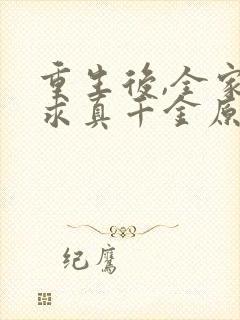 重生後,全家
求真千金原
纪鹰